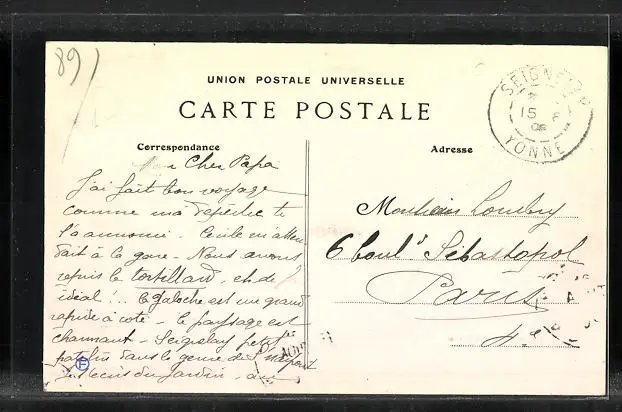 89
UNION POSTALE UNIVERSELLE
CARTE POSTALE
SEIGNELAY
15
YONNE
Correspondance
Cher Papa
J'ai fait bon voyage
comme ma dépêche te
l'a annoncé - Cécile m'atten
dait à la gare - Nous avons
repris le tortillard, et de
idéal ... le galoche est une grand
rapide à côté - le paysage est
charmant - Seignelay petit
patelin dans le genre de
Adresse
Monsieur
6 boul^d Sébastopol
Paris